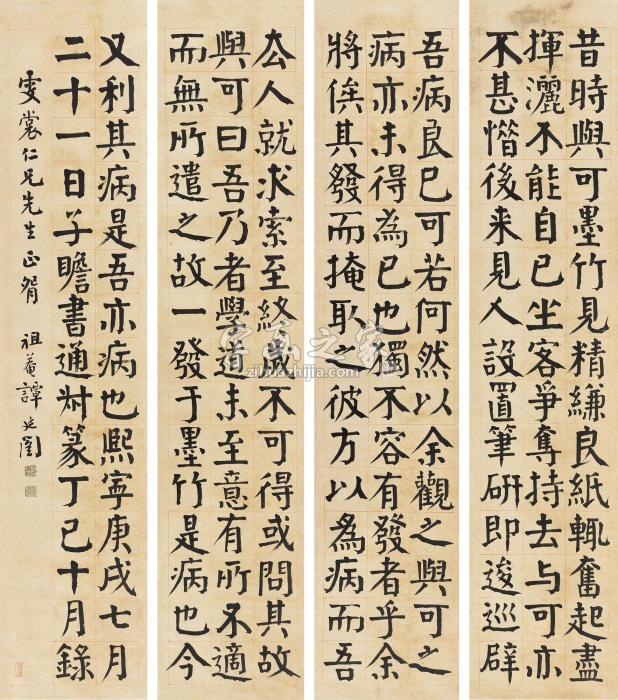 昔時與可墨竹見精縑良紙輙奮起盡
揮灑不能自已坐客爭奪持去与可亦
不甚惜後来見人設置筆研即逡巡辟
厺人就求索至終歲不可得或問其故
與可曰吾乃者學道未至意有所不適
而無所遣之故一發于墨竹是病也今
吾病良已可若何然以余觀之與可之
病亦未得為已也獨不容有發者乎余
將俟其發而掩取之彼方以為病而吾
又利其病是吾亦病也熙寧庚戌七月
二十一日子瞻書通尗篆丁巳十月錄
雯裳仁兄先生正 祖菴譚延闓
字画之家
zihuazhijia.com